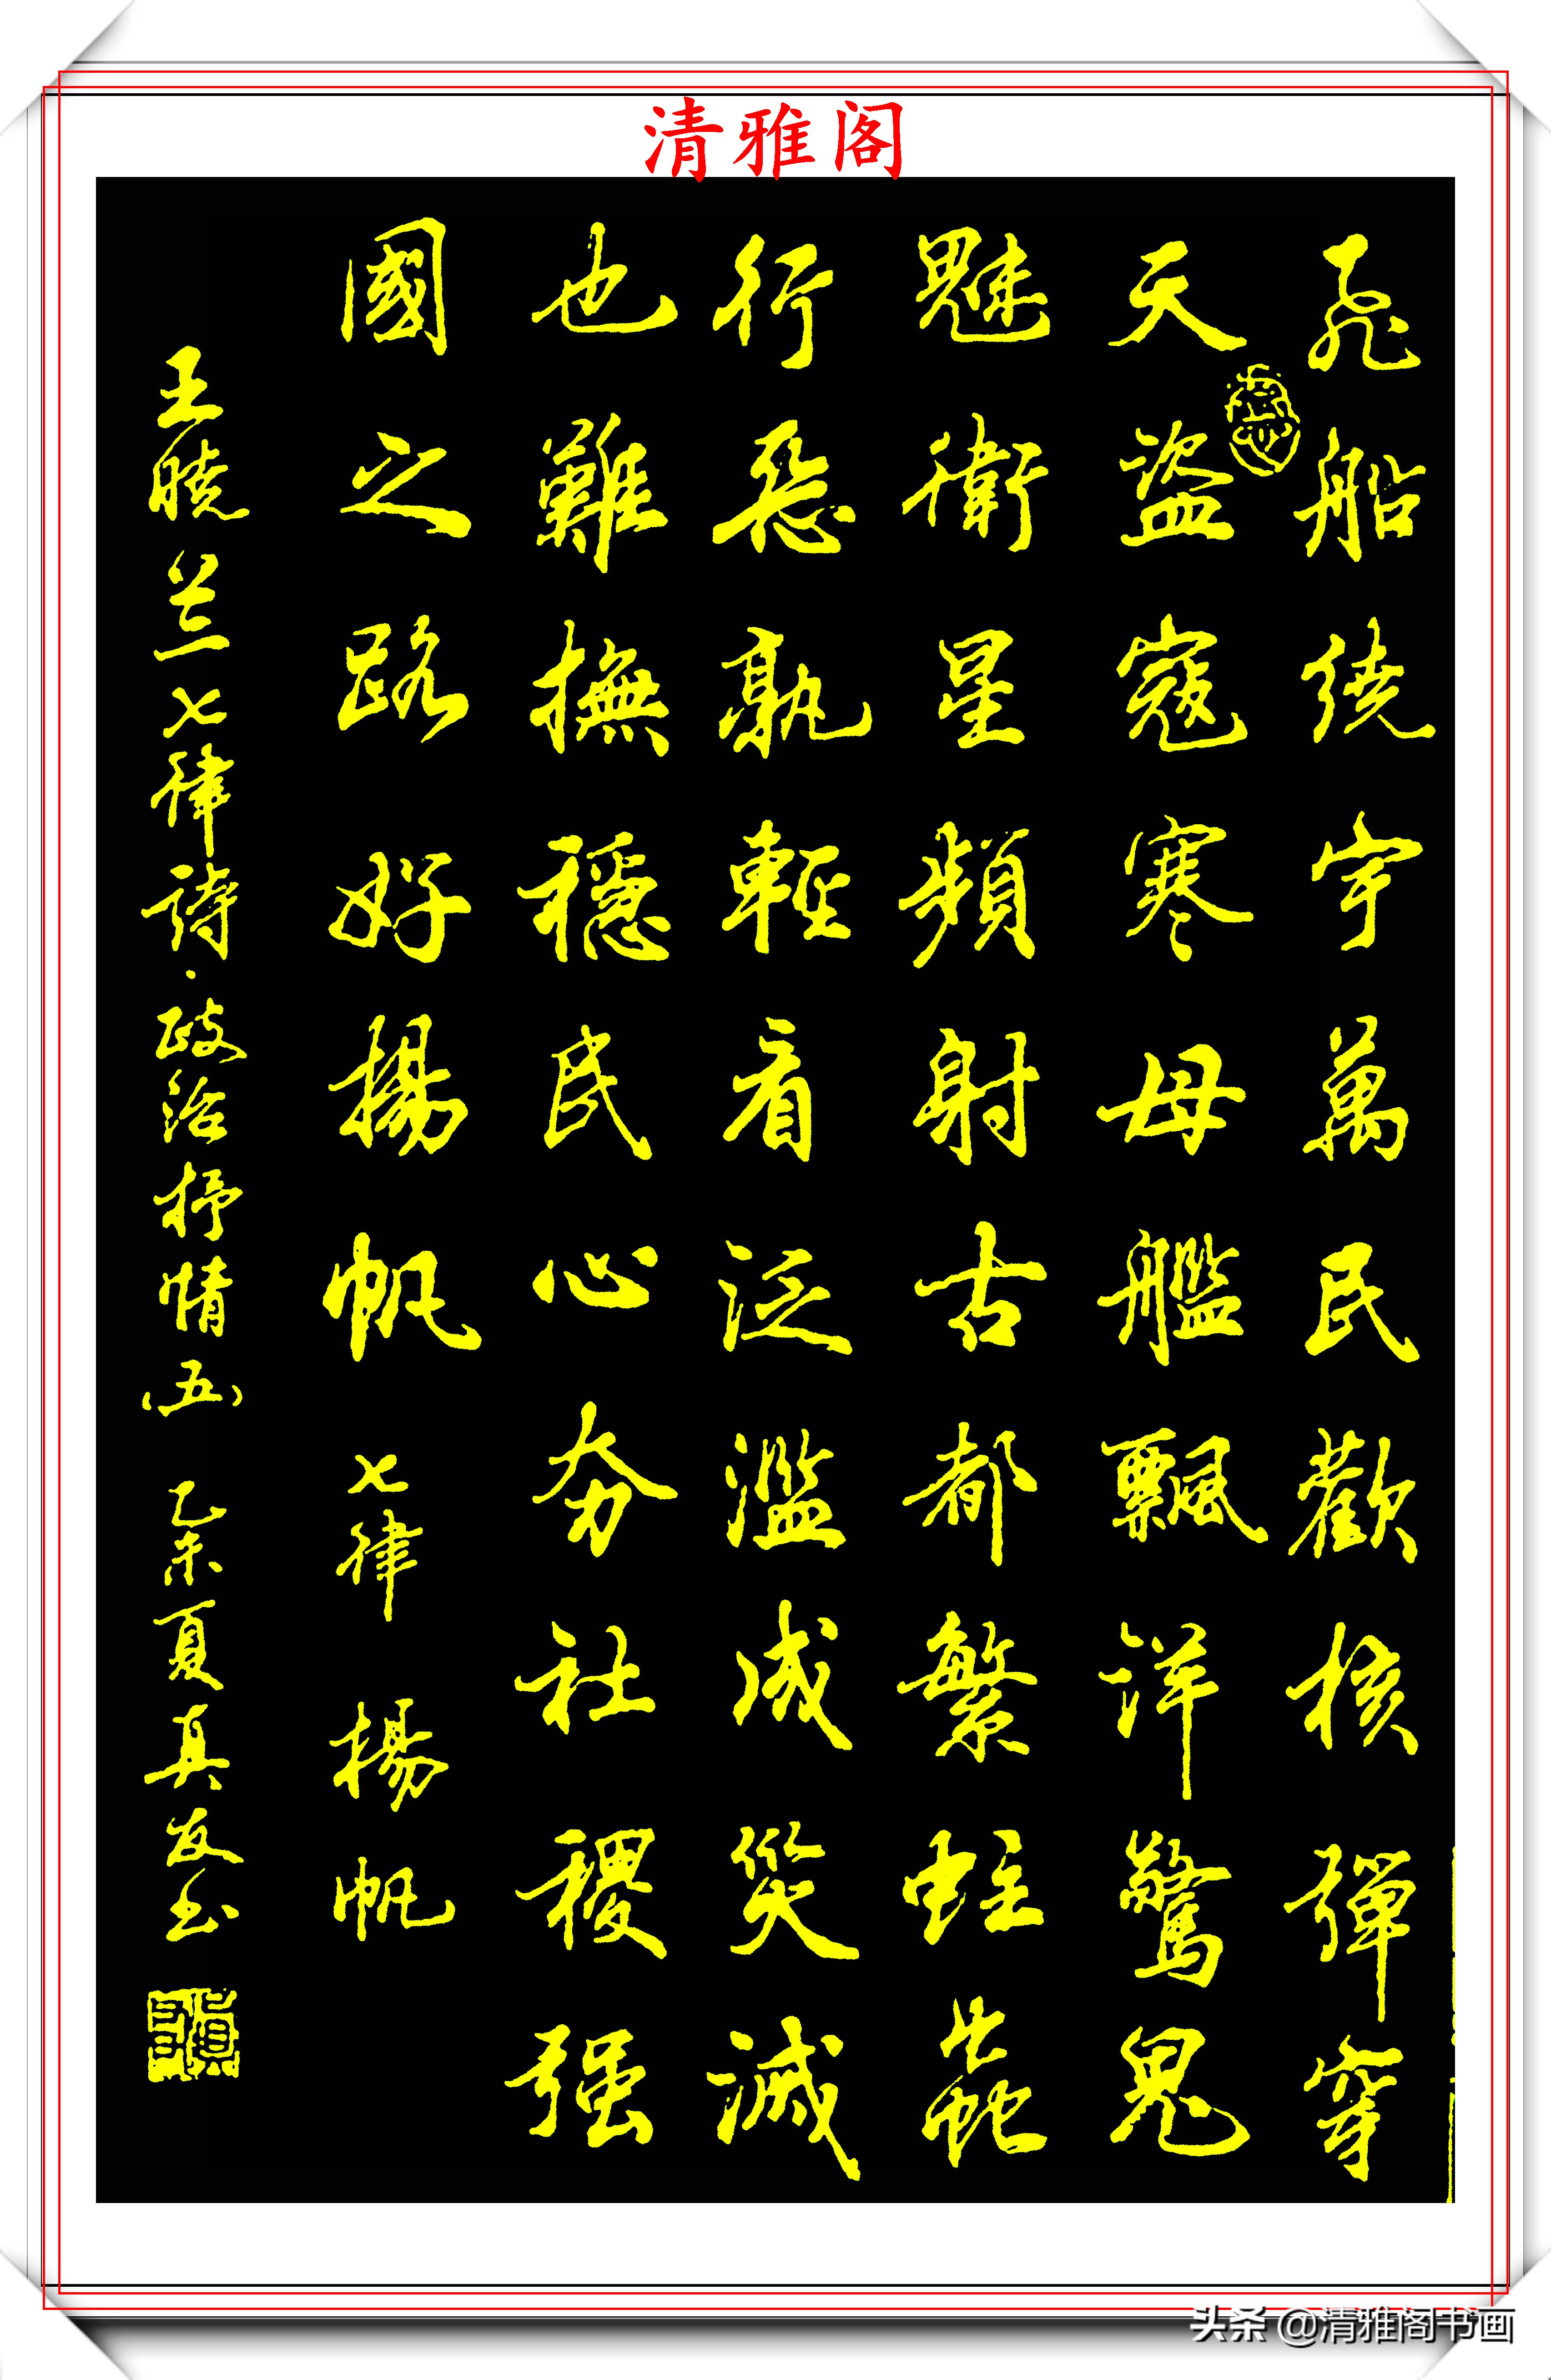 清雅阁
飛船繞宇萬民歡核彈穿
天盜寇寒母艦飄洋驚鬼
魅衛星頻射古都繁蛀蟲
行惡孰輕看泛濫成災滅
也難撫穩民心夯社稷强
國之路好揚帆 七律 揚帆
王曉兰七律詩·政治抒情(五) 乙未夏真友书
头条 @清雅阁书画